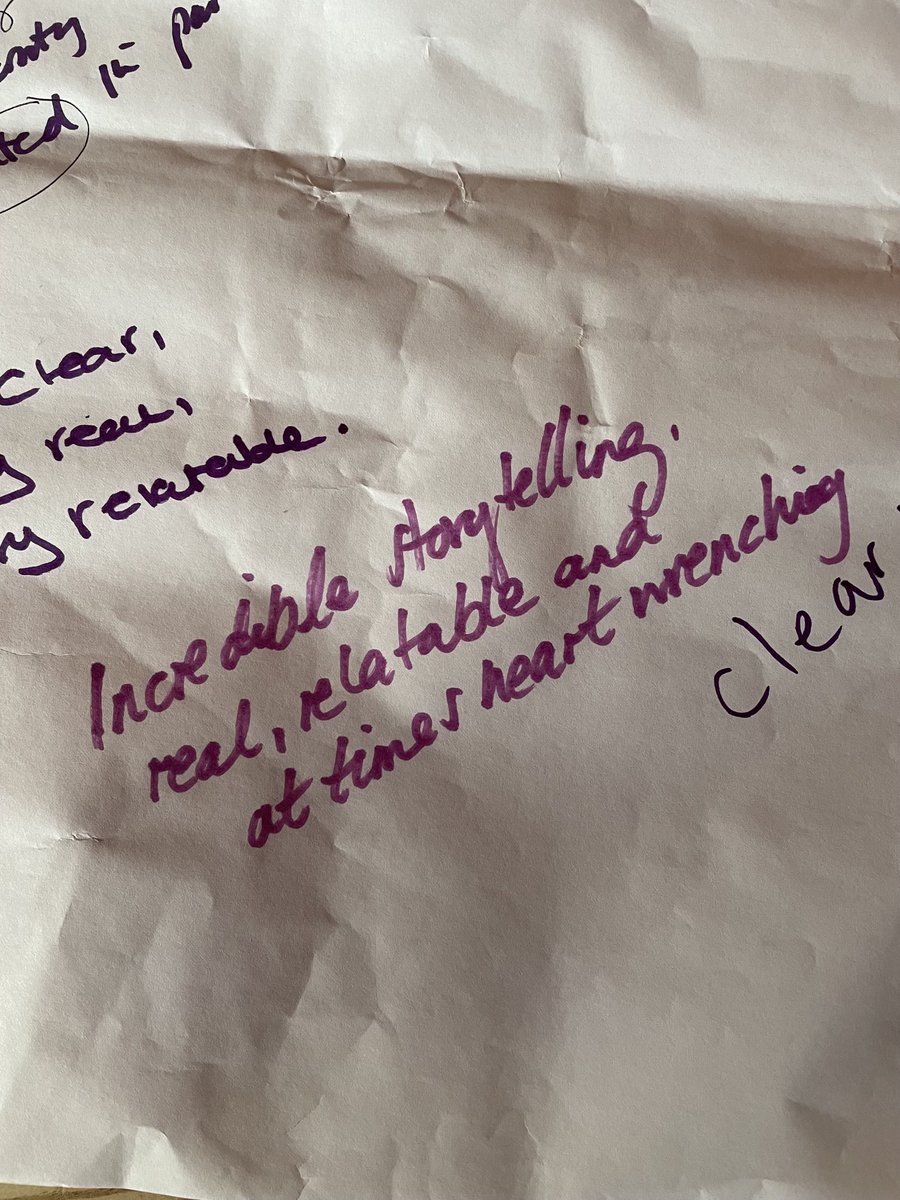 in
Clear,
real,
relatable.
Incredible storytelling.
real, relatable and
at times heart wrenching
clear.